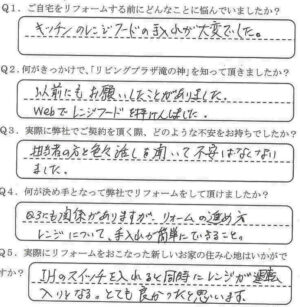 Q1．ご自宅をリフォームする前にどんなことに悩んでいましたか？
キッチンのレンジフードの手入れが大変でした。
Q2．何がきっかけで、「リビングプラザ滝の神」を知って頂きましたか？
以前にもお願いしたことがありました。
Webでレンジフードを
Q3．実際に弊社でご契約を頂く際、どのような不安をお持ちでしたか？
担当者の方と色々話しを聞いて不安はなくなり
ました。
Q4．何が決め手となって弊社でリフォームをして頂けましたか？
Q3にも関係がありますが、リォームの進め方
レンジについて、手入れが簡単にできること。
Q5．実際にリフォームをおこなった新しいお家の住み心地はいかがで
すか？
IHのスイッチを入れると同時にレンジが運転
入りとなる。とても良かったと思います。